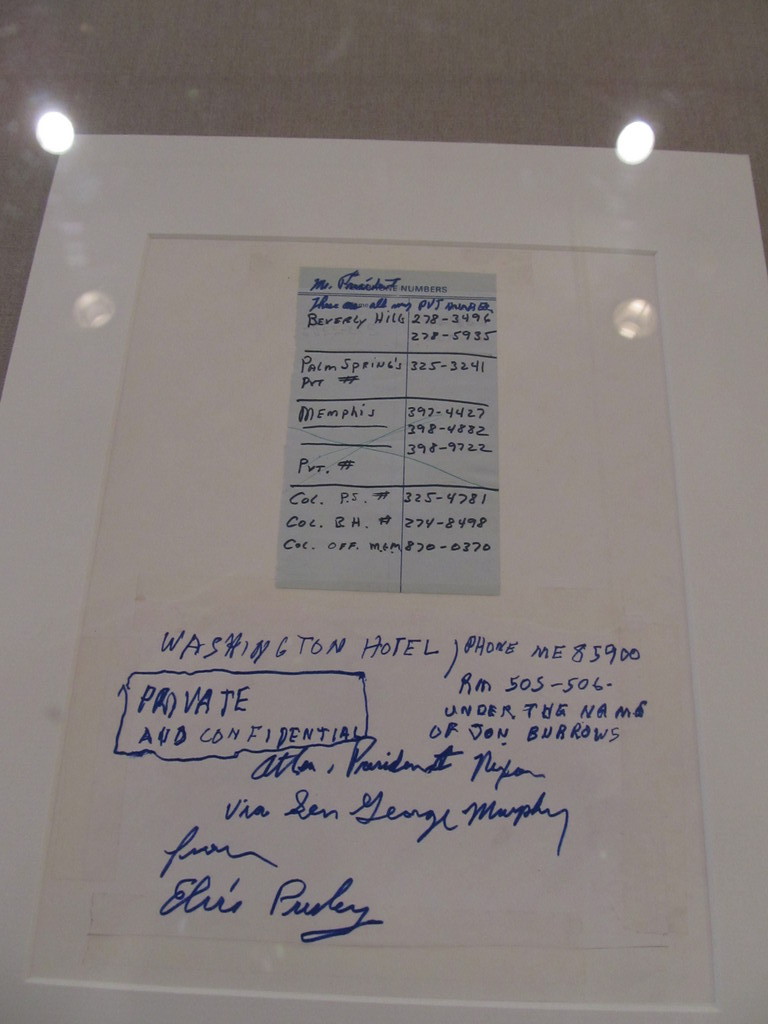 Mr. President
NUMBERS
These are all my PVT numbers
BEVERLY HILLS 278-3496
278-5935
PALM SPRING'S 325-3241
PVT #
MEMPHIS 397-4427
398-4882
398-9722
PVT. #
COL. P.S. # 325-4781
COL. B.H. # 274-8498
COL. OFF. MGM 870-0370
WASHINGTON HOTEL, PHONE ME 85900
RM 505-506-
PRIVATE
UNDER THE NAME
AND CONFIDENTIAL
OF JON BURROWS
Attn. President Nixon
via Sen George Murphy
from
Elvis Presley